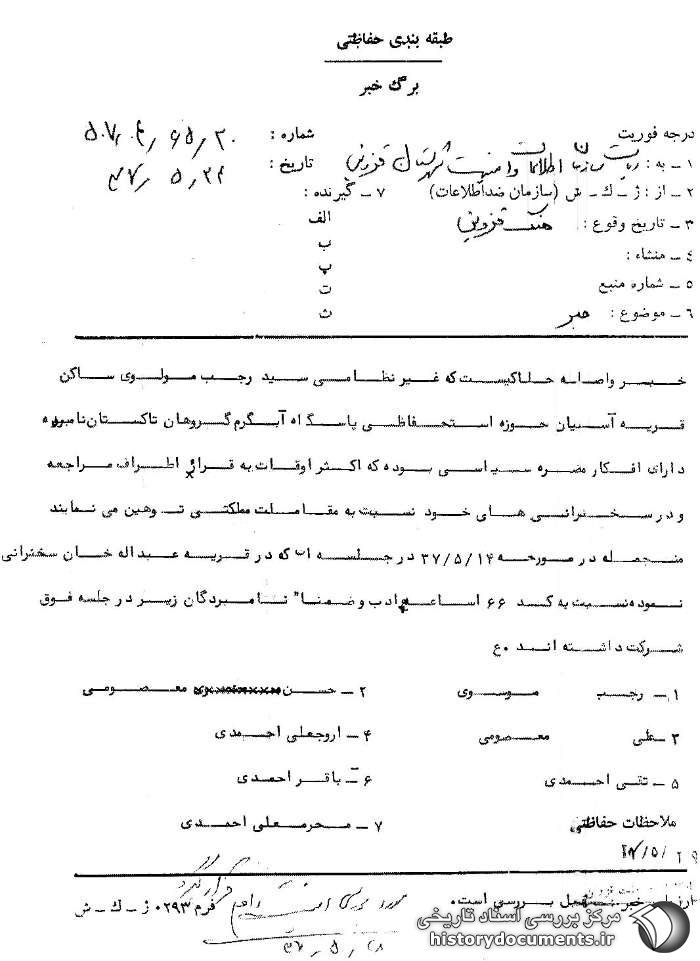 طبقه بندی حفاظتی
برگ خبر
درجه فوریت
شماره :
۱ ـ به : ریاست سازمان اطلاعات و امنیت شهرستان قزوین
تاریخ :
۲ ـ از : ژ ـ ك ـ ش (سازمان ضداطلاعات) ۷ ـ گیرنده :
۳ ـ تاریخ وقوع : الف
۴ ـ منشاء : ب
پ
۵ ـ شماره منبع ت
۶ ـ موضوع : خبر ث
خبر واصله حاکیست که غیر نظامی سید رجب مولوی ساکن
قریه آسیان حوزه استحفاظی پاسگاه آبگرم گروهان تاکستان نامبرده
دارای افکار مضره سیاسی بوده که اکثر اوقات به قراء اطراف مراجعه
و در سخنرانی های خود نسبت به مقامات مملکتی توهین می نمایند
منجمله در مورخه ۳۷/۵/۱۴ در جلسه ای که در قریه عبداله خان سخنرانی
نموده نسبت به کد ۶۶ اسائه ادب و ضمنا" نامبردگان زیر در جلسه فوق
شرکت داشته اند . ع
۱ ـ رجب موسوی ۲ ـ حسن معصومی
۳ ـ علی معصومی ۴ ـ اروجعلی احمدی
۵ ـ تقی احمدی ۶ ـ باقر احمدی
۷ ـ محرمعلی احمدی
ملاحظات حفاظتی
بررسی است.
فرم ۰۲۹۳ ژ ـ ك ـ ش
مرکز بررسی اسناد تاریخی
historydocuments.ir